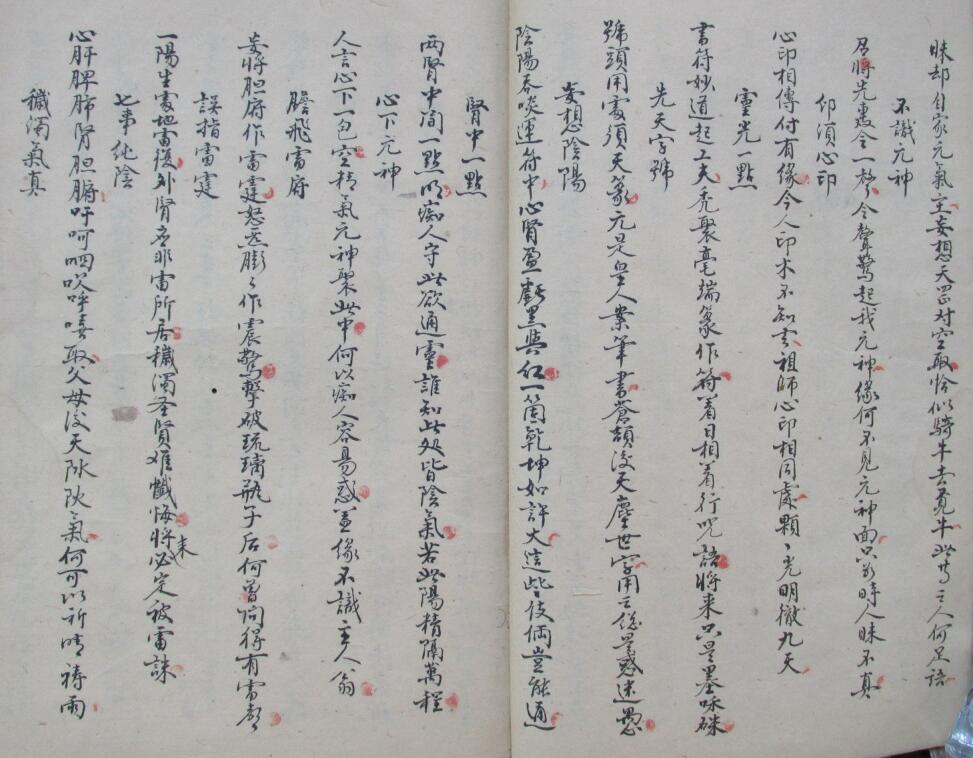 昧却自家元氣空妄想天罡對空取恰似騎牛去覓牛此等之人何足語
不識元神
召將先書令一攃令聲驚起我元神緣何不見元神面只為時人昧不真
仰須心印
心印相傳付有緣今人印木不知玄祖師心印相同處顆〻光明徹九天
靈光一點
書符妙道起工夫禿聚毫端篆作符着日相着行咒語將来只是墨咊硃
先天字號
號頭用處須天篆元是皇人案筆書蒼頡後天塵世字用之總是惑迷愚
妄想陰陽
陰陽吞啖運符中心腎盈虧黑與红一箇乾坤如許大這些伎倆豈能通
腎中一點
两腎中间一點以痴人守此欲通靈誰知此处皆陰氣若此陽精隔萬程
心下元神
人言心下一包空精氣元神聚此中何以痴人容易惑蓋缘不識主人翁
膽飛雷府
妄將胆府作雷霆怒恶膨〻作震驚擊破琉璃瓶子后何曾问得有雷声
誤指雷霆
一陽生處地雷復外腎言非雷所居穢濁圣賢难懺悔將来必定被雷誅
七事純陰
心肝脾肺腎胆腑吁呵呬吹呼嘻取父母後天陰阳氣何可以祈晴祷雨
穢濁氣真